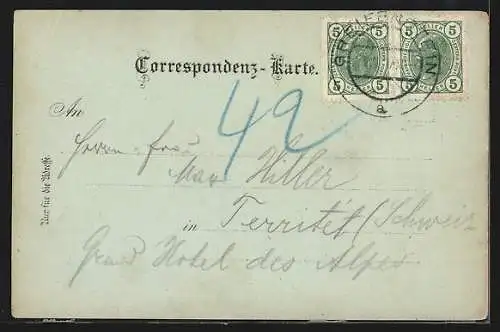 5 5 5 5
5 5 5 5
Correspondenz-Karte.
a
42
An
Herrn & Frau
Max Hiller
in Territet/Schweiz
Grand Hotel des Alpes
Nur für die Adresse.